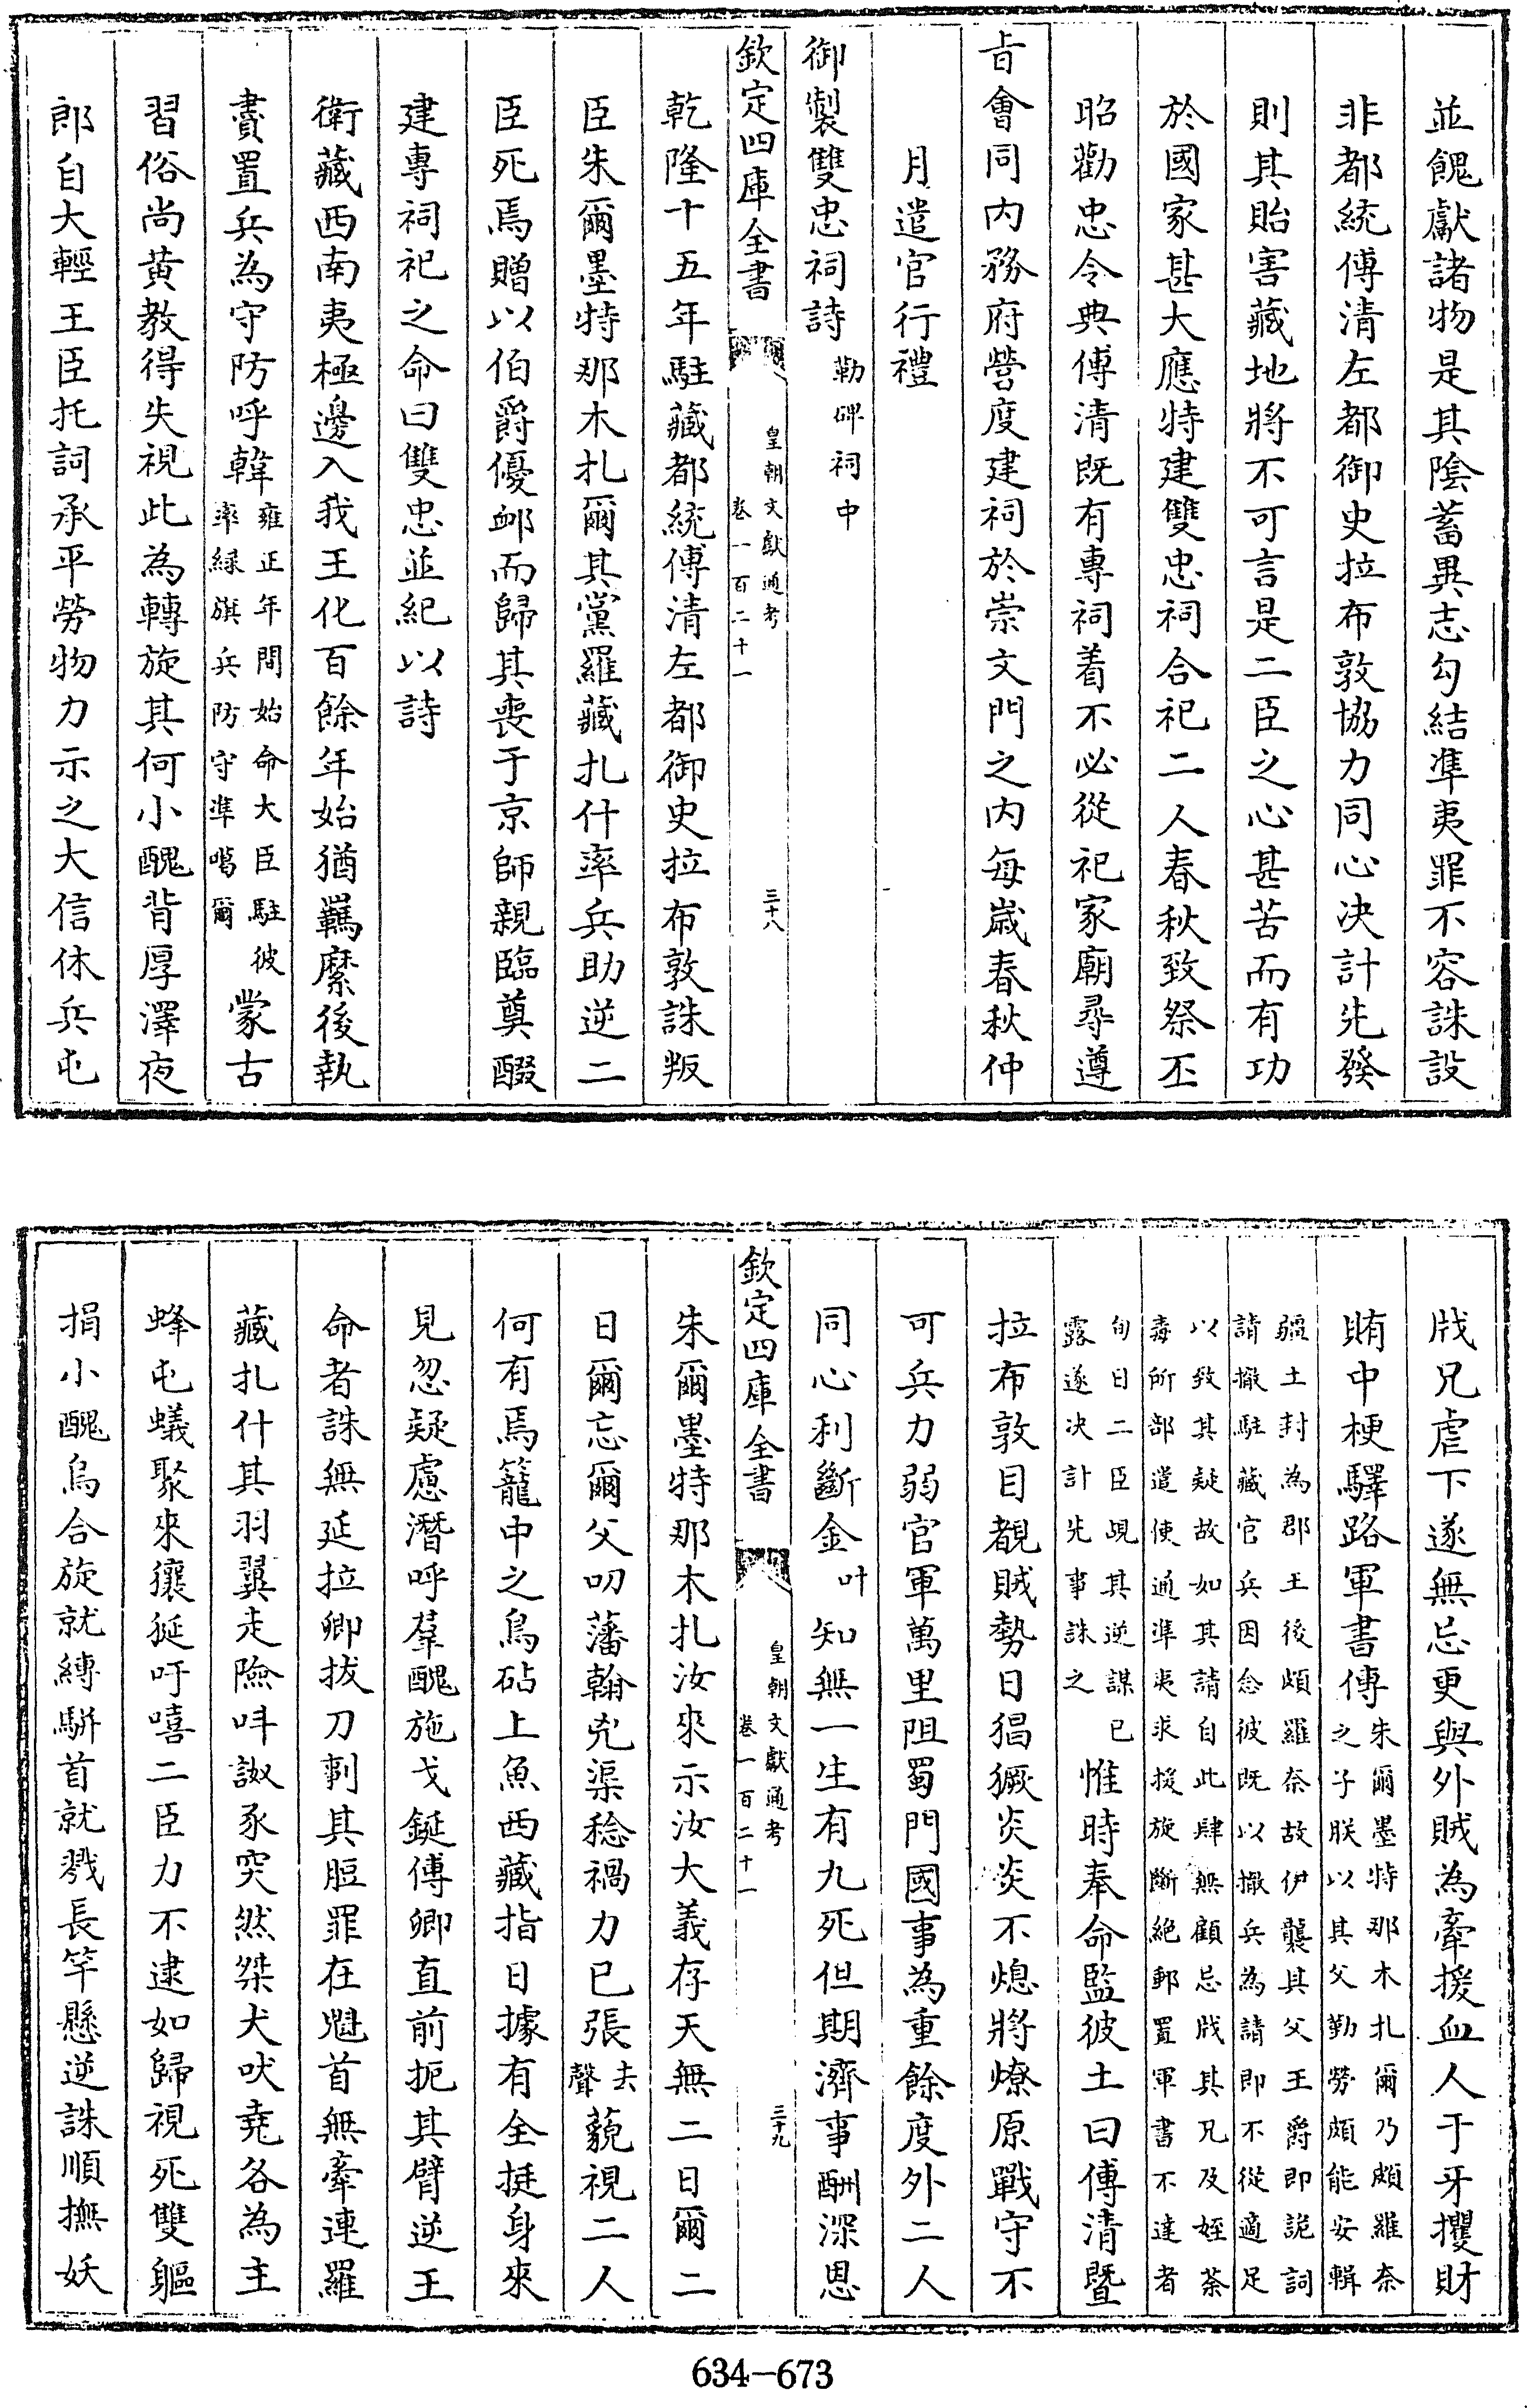 並餽獻諸物是其陰蓄異志勾結準夷罪不容誅設
非都統傅清左都御史拉布敦協力同心決計先發
則其貽害藏地將不可言是二臣之心甚苦而有功
於國家甚大應特建雙忠祠合祀二人春秋致祭丕
昭勸忠令典傅清既有專祠着不必從祀家廟尋遵
㫖會同內務府營度建祠於崇文門之內每嵗春秋仲
月遣官行禮
御製雙忠祠詩勒碑祠中
欽定四庫全書
皇朝文獻通考
卷一百二十一
三十八
乾隆十五年駐藏都統傅清左都御史拉布敦誅叛
臣朱爾墨特那木扎爾其黨羅藏扎什率兵助逆二
臣死焉贈以伯爵優䘏而歸其喪于京師親臨奠醊
建專祠祀之命曰雙忠並紀以詩
衛藏西南夷極邊入我王化百餘年始猶羈縻後執
賷置兵為守防呼韓雍正年間始命大臣駐彼
率緑旗兵防守準噶爾蒙古
習俗尚黄教得失視此為轉旋其何小醜背厚澤夜
郎自大輕王臣托詞承平勞物力示之大信休兵屯
戕兄虐下遂無忌更與外賊為牽援血人于牙攫財
賄中梗驛路軍書傳朱爾墨特那木扎爾乃頗羅奈
之子朕以其父勤勞頗能安輯
疆土封為郡王後頗羅奈故伊襲其父王爵即詭詞
請撤駐藏官兵因念彼既以撤兵為請即不從適足
以致其疑故如其請自此肆無顧忌戕其兄及姪荼
毒所部遣使通準夷求援旋斷絶郵置軍書不達者
旬日二臣覘其逆謀已
露遂决計先事誅之惟時奉命監彼土曰傅清暨
拉布敦目覩賊勢日猖獗炎炎不熄將燎原戰守不
可兵力弱官軍萬里阻蜀門國事為重餘度外二人
同心利斷金叶知無一生有九死但期濟事酬深恩
欽定四庫全書
皇朝文獻通考
卷一百二十一
三十九
朱爾墨特那木扎汝來示汝大義存天無二日爾二
日爾忘爾父叨藩翰兇渠稔禍力已張去
聲藐視二人
何有焉籠中之鳥砧上魚西藏指日據有全挺身來
見忽疑慮潛呼羣醜施戈鋋傅卿直前扼其臂逆王
命者誅無延拉卿拔刀剚其脰罪在魁首無牽連羅
藏扎什其羽翼走險呌譈豕突然桀犬吠堯各為主
蜂屯蟻聚來獽狿吁嘻二臣力不逮如歸視死雙軀
捐小醜烏合旋就縛駢首就戮長竿懸逆誅順撫妖
634-673